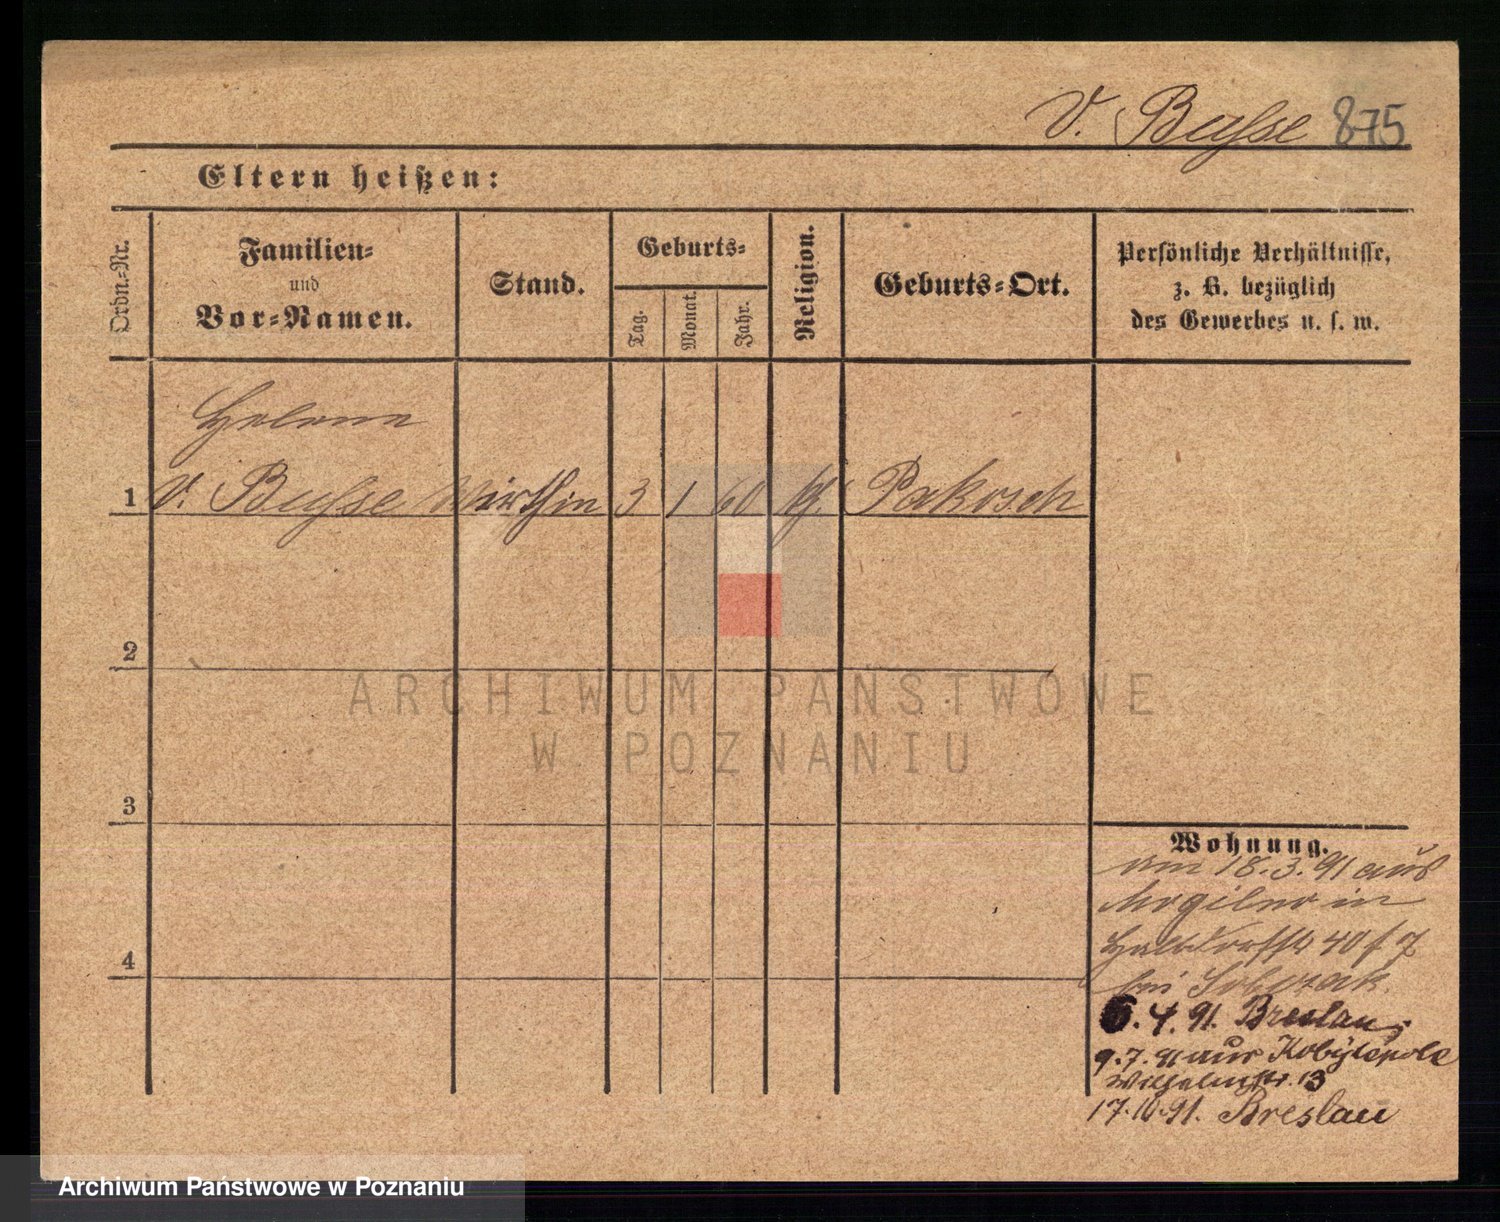 v. Busse 875
Eltern heißen:
Ordn.-Nr.
Familien-
und
Vor-Namen.
Stand.
Geburts-
Tag.
Monat.
Jahr.
Religion.
Geburts-Ort.
Persönliche Verhältnisse,
z. B. bezüglich
des Gewerbes u. s. w.
Helene
1 v. Busse Wirthin 3 1 60 Pakosch
2
3
4
ARCHIWUM PAŃSTWOWE
W POZNANIU
Wohnung.
am 18.3.91 aus
in
40 f 7
bei
6.4.91. Breslau
9.7.91 aus Kobylepole
Wilhelmstr. 13
17.10.91. Breslau
Archiwum Państwowe w Poznaniu